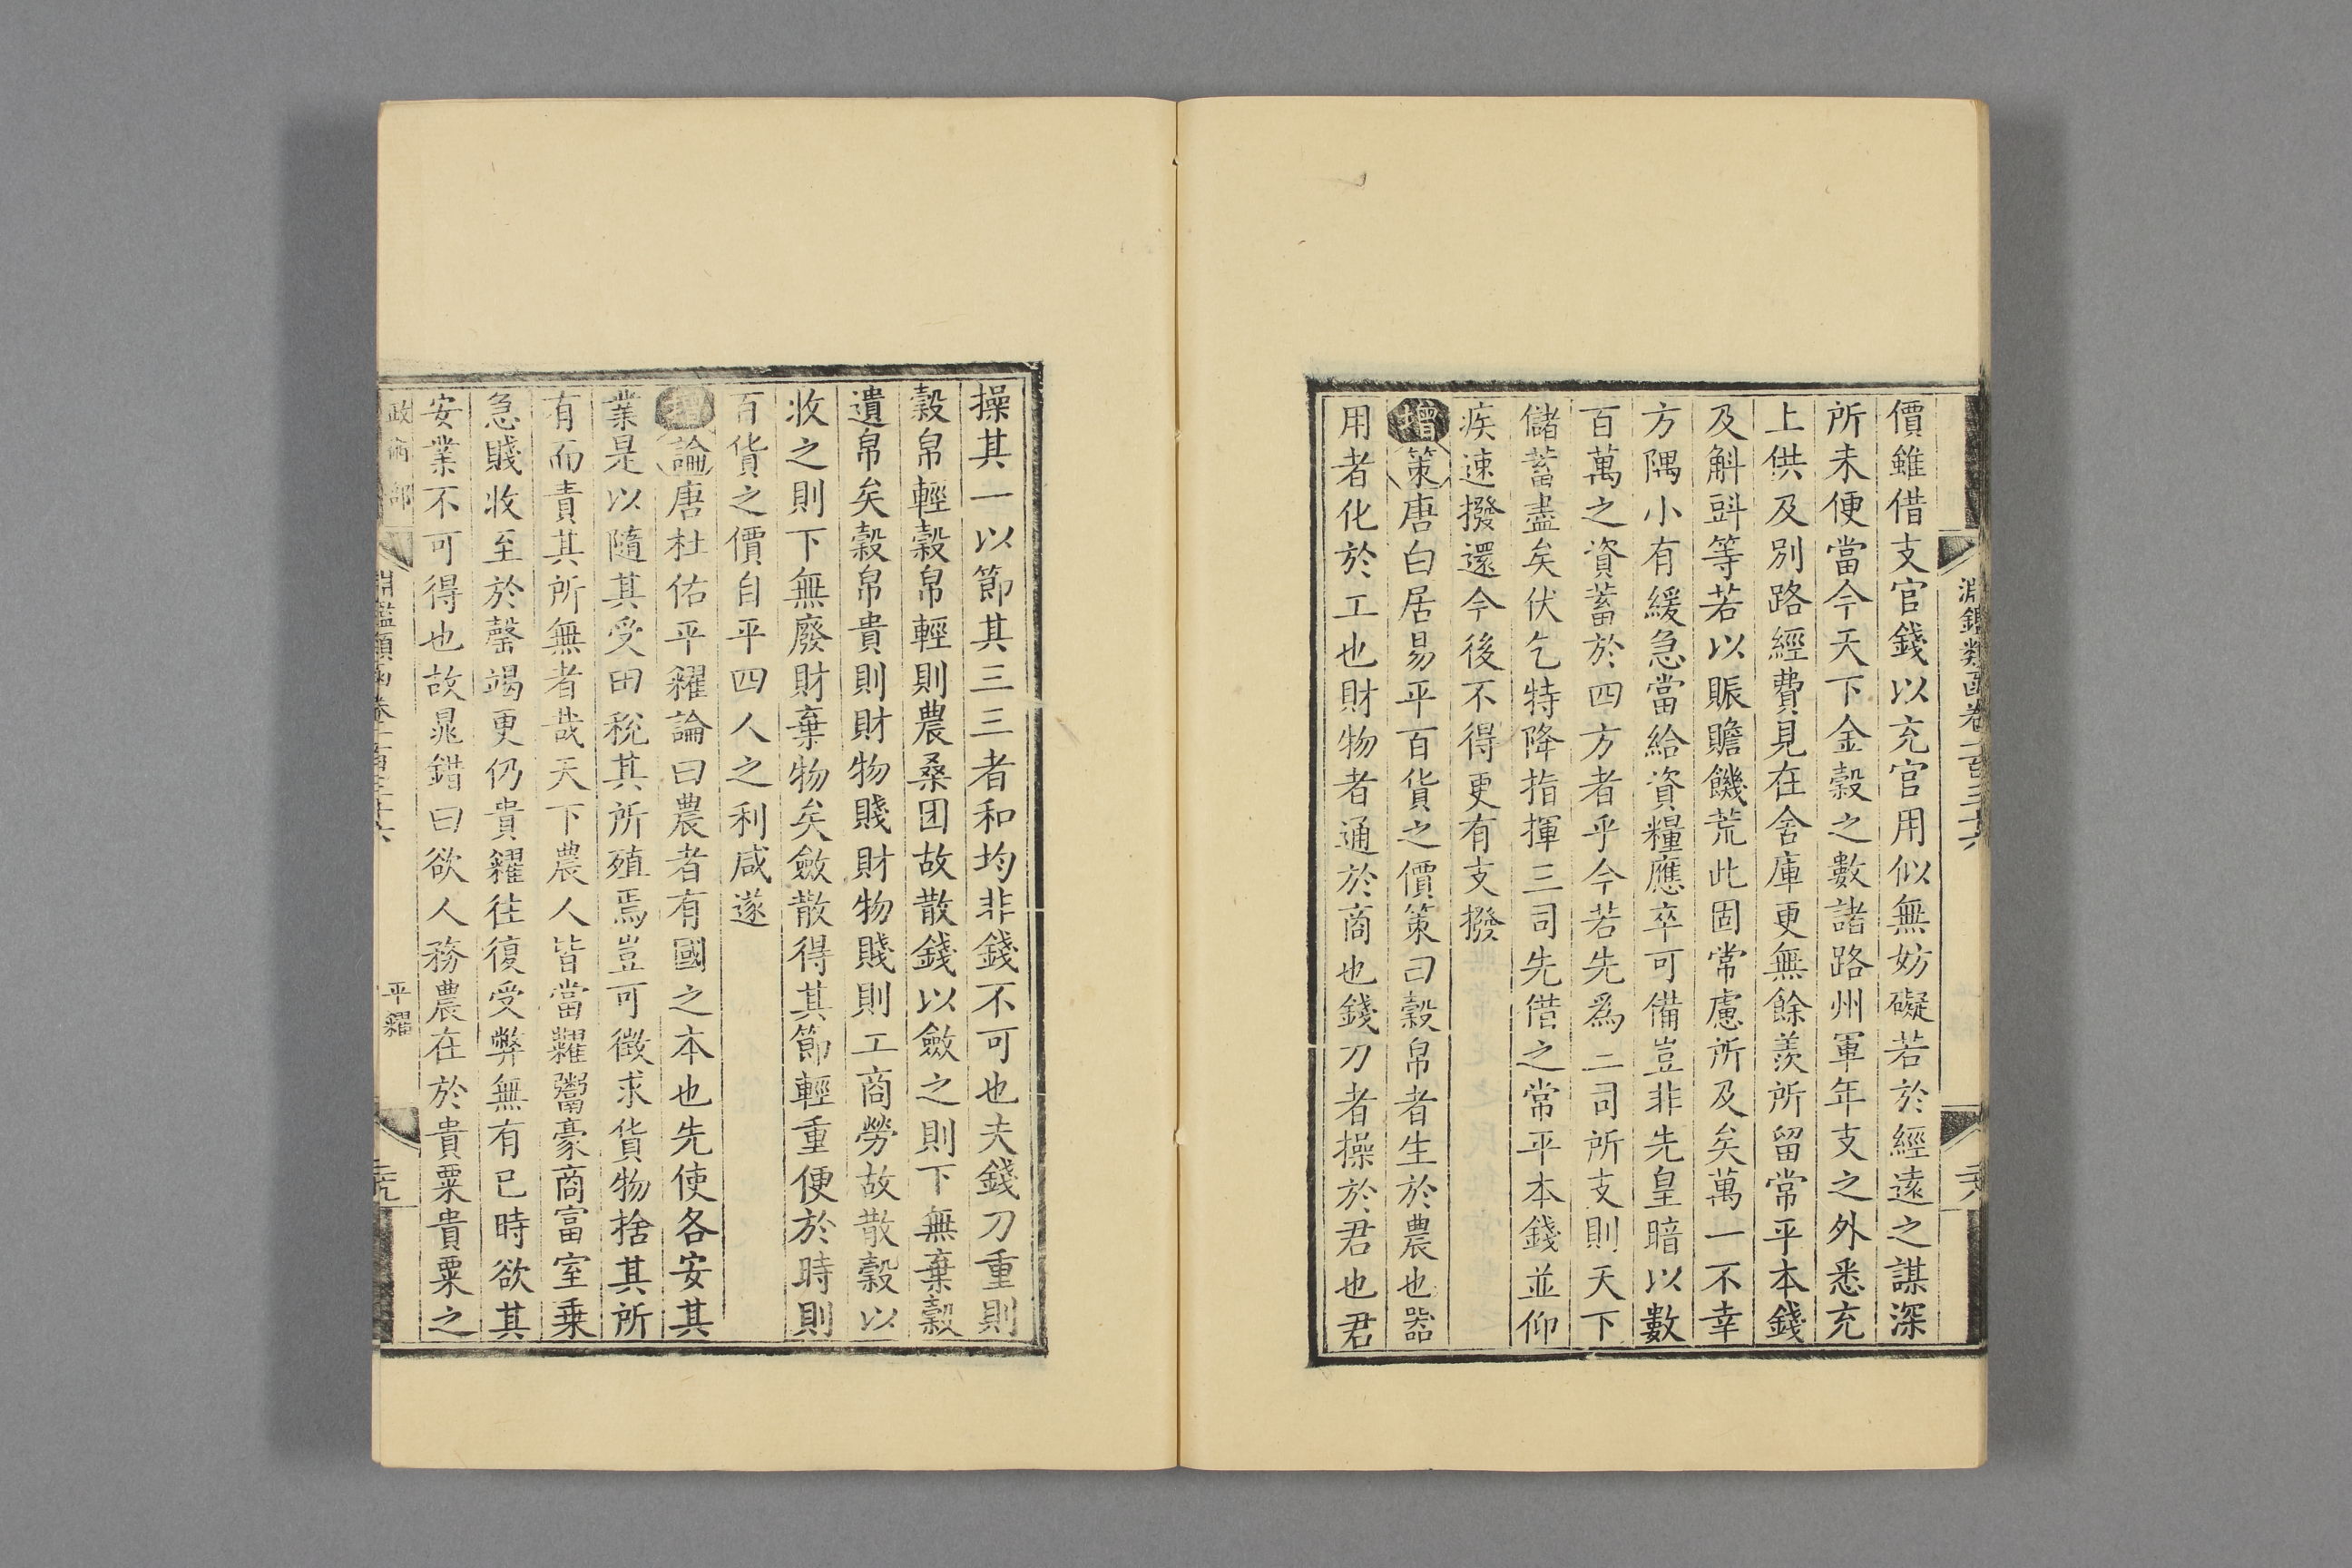 淵鑑類函卷一百三十六
價雖借支官錢以充官用似無妨礙若於經遠之謀深
所未便當今天下金穀之數諸路州軍年支之外悉充
上供及別路經費見在舍庫更無餘羨所留常平本錢
及斛㪷等若以賑贍饑荒此固常慮所及矣萬一不幸
方隅小有緩急當給資糧應卒可備豈非先皇暗以數
百萬之資蓄於四方者乎今若先為二司所支則天下
儲蓄盡矣伏乞特降指揮三司先借之常平本錢並仰
疾速撥還今後不得更有支撥
增策唐白居易平百貨之價策曰穀帛者生於農也器
用者化於工也財物者通於商也錢刀者操於君也君
操其一以節其三三者和均非錢不可也夫錢刀重則
穀帛輕穀帛輕則農桑困故散錢以斂之則下無棄穀
遺帛矣穀帛貴則財物賤財物賤則工商勞故散穀以
收之則下無廢財棄物矣斂散得其節輕重便於時則
百貨之價自平四人之利咸遂
增論唐杜佑平糴論曰農者有國之本也先使各安其
業是以隨其受田稅其所殖焉豈可徵求貨物捨其所
有而責其所無者哉天下農人皆當糶鬻豪商富室乗
急賤收至於罄竭更仍貴糴往復受弊無有已時欲其
安業不可得也故鼂錯曰欲人務農在於貴粟貴粟之
政術部
淵鑑類函卷一百三十六
平糴